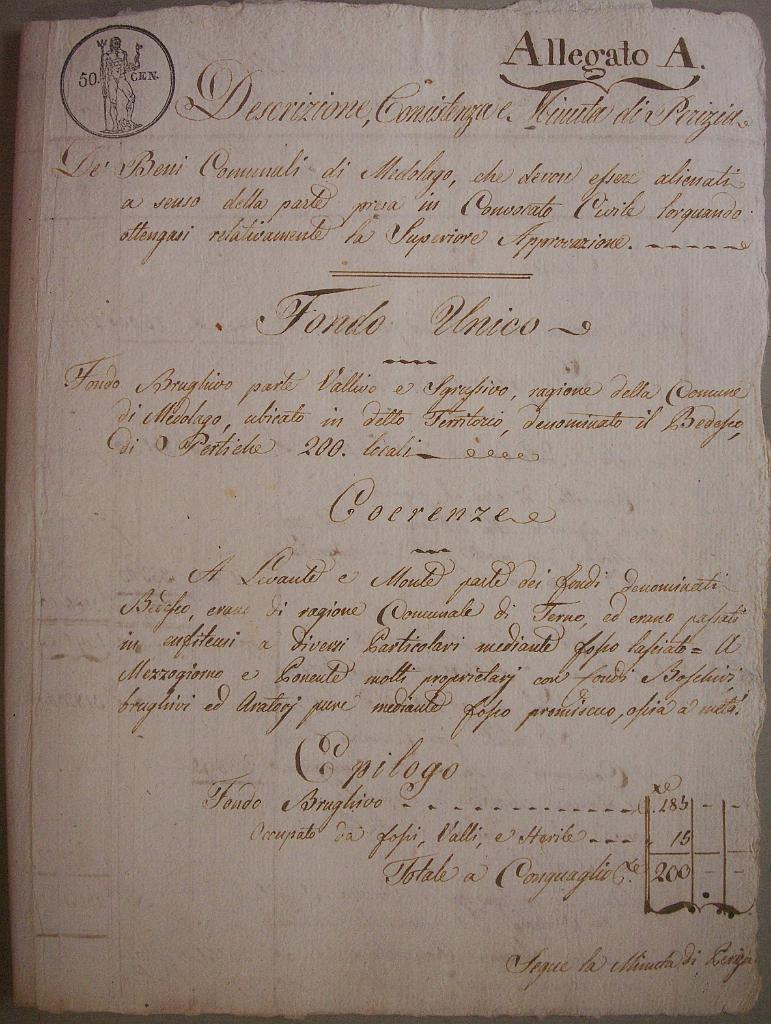 Allegato A.
50. CEN.
Descrizione, Consistenza e Minuta di Perizia
De' Beni Comunali di Medolago, che devon essere alienati
a senso della parte presa in Convocato Civile lorquando
ottengasi relativamente la Superiore Approvazione.
Fondo Unico
Fondo Brughivo parte Vallivo e Sgrussivo, ragione della Comune
di Medolago, ubicato in detto Territorio, denominato il Bedesco,
di Pertiche 200. locali
Coerenze
A Levante e Monte parte dei fondi denominati
Bedesco, erano di ragione Comunale di Terno, ed erano passati
in enfiteusi a diversi Particolari mediante fosso lasciato = A
Mezzogiorno e Ponente molti proprietarj con fondi Boschivi
brughivi ed Aratorj pure mediante fosso promiscuo, ossia a metà.
Epilogo
Fondo Brughivo 185 - -
Occupato da fossi, Valli, e Sterile 15
Totale a Conguaglio 200 - -
Segue la Minuta di Perizia